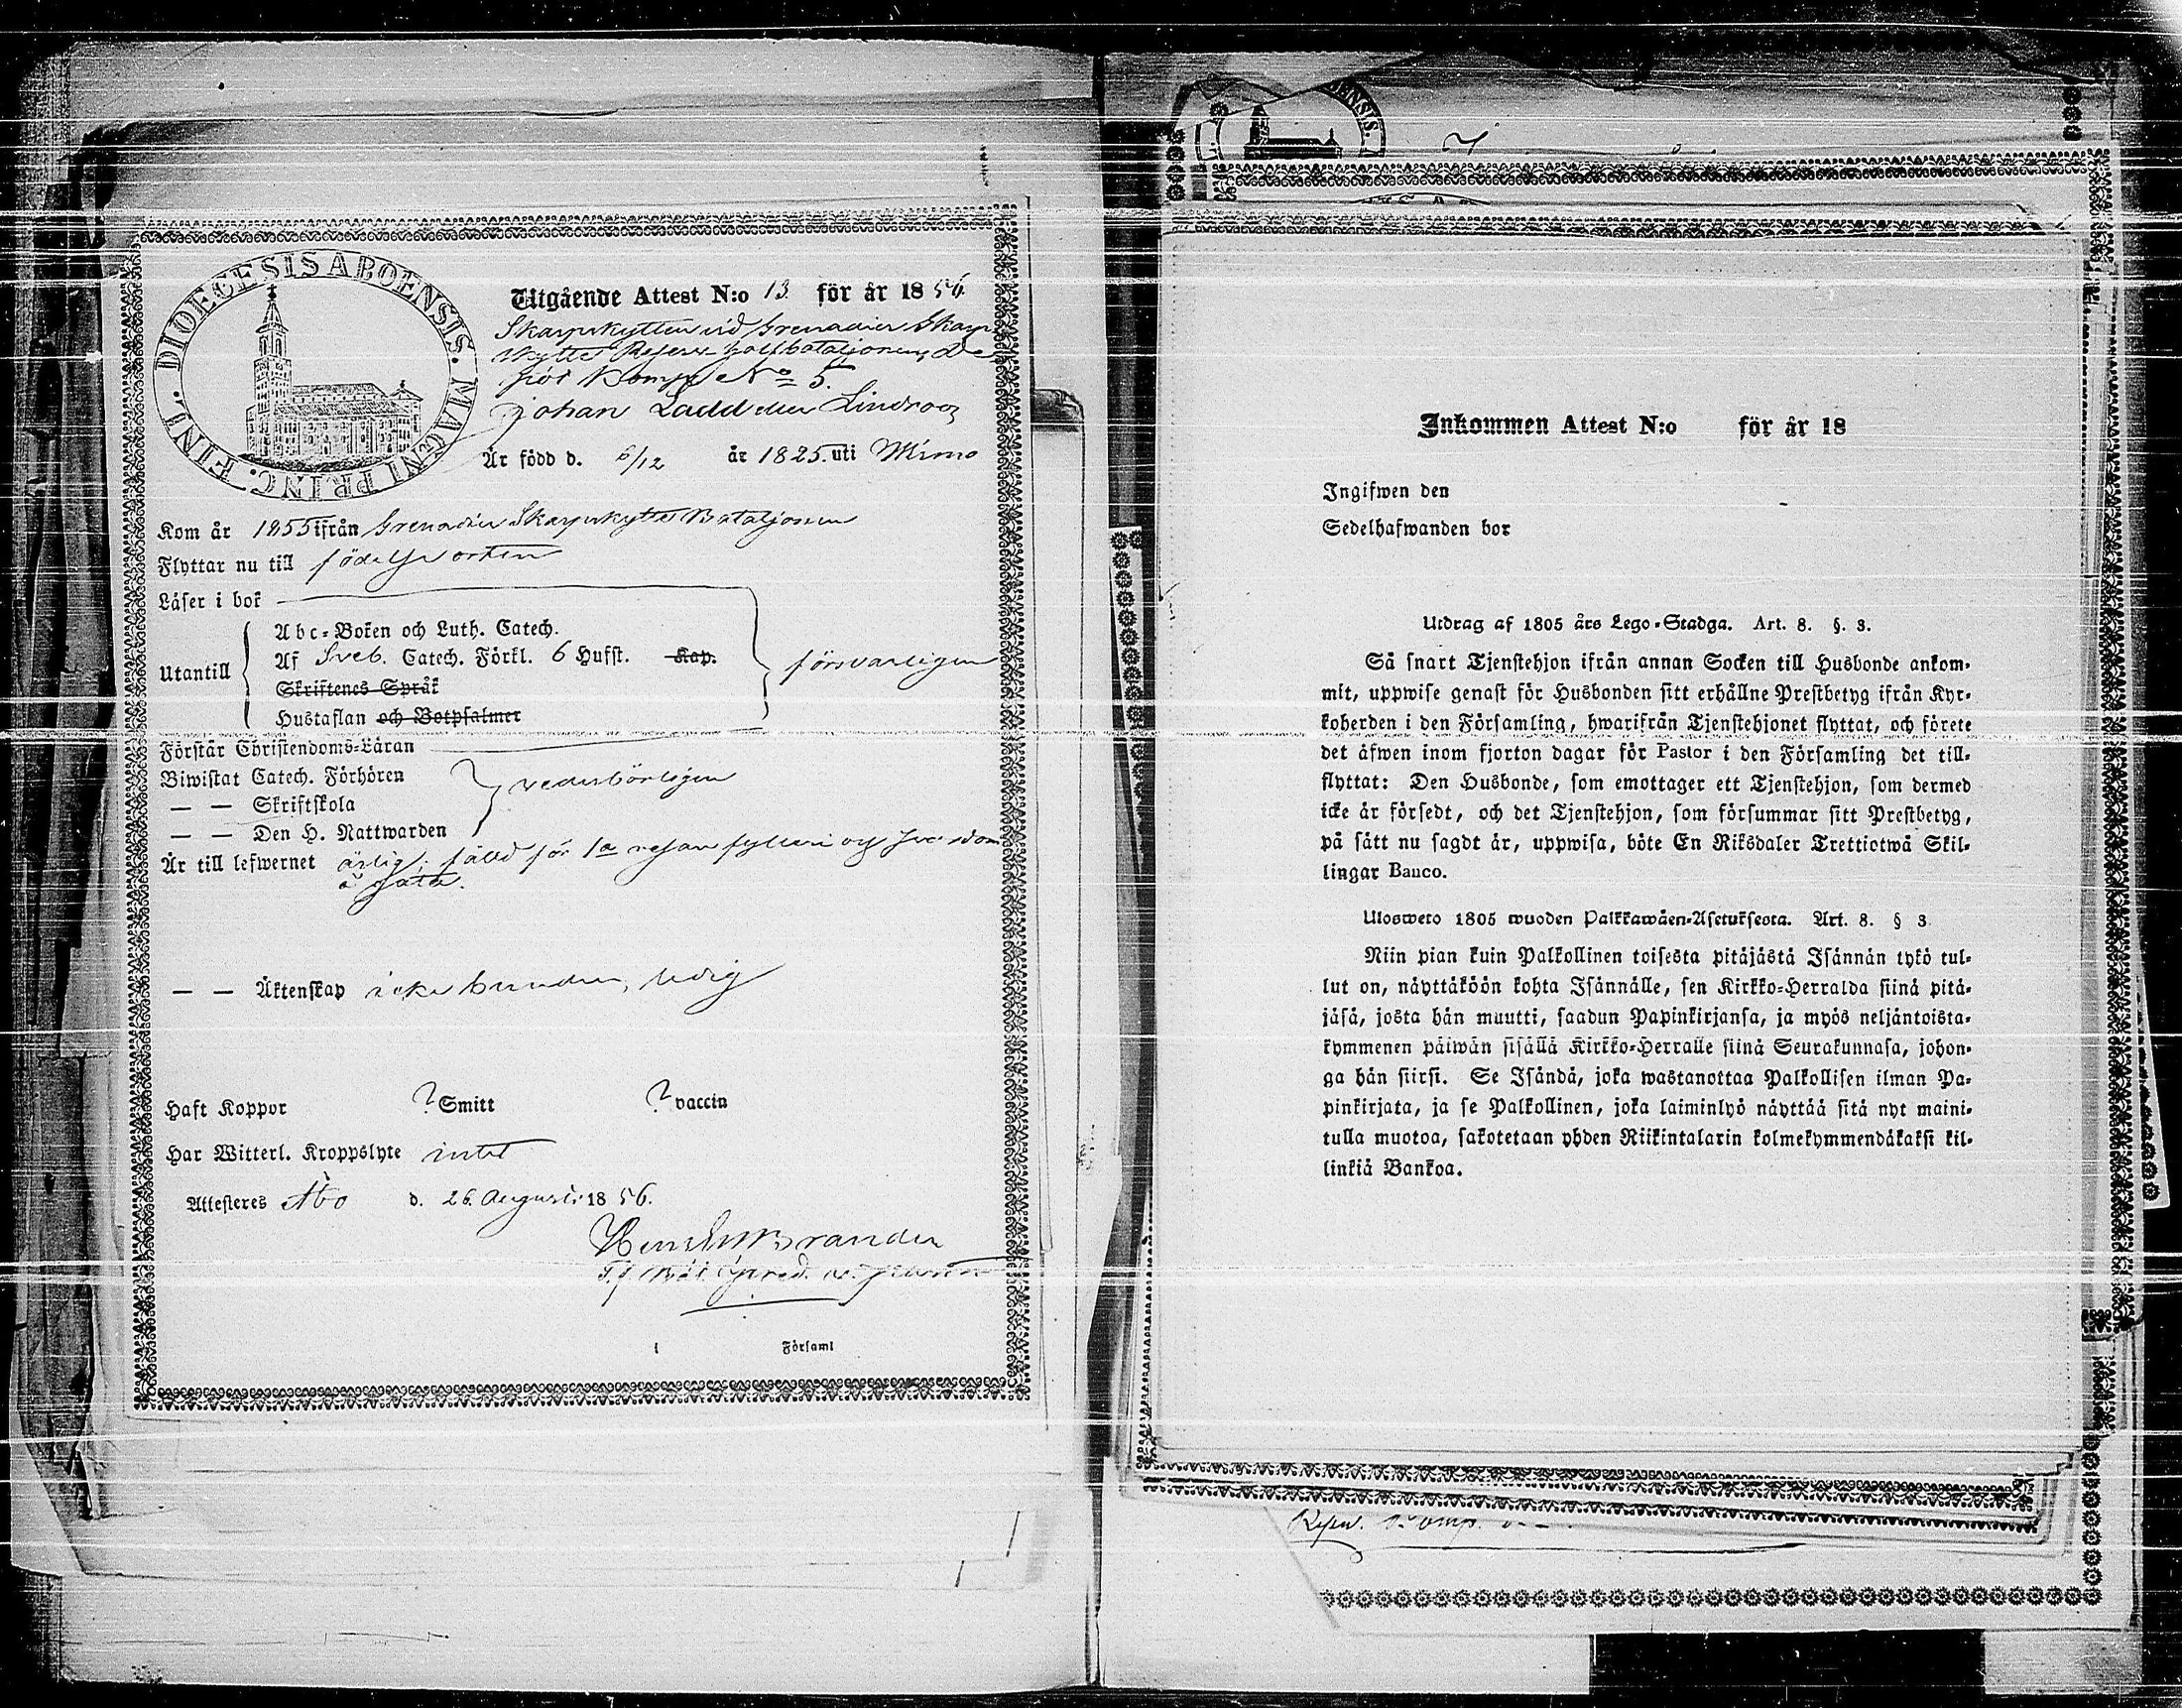 DIOECESIS ABOENSIS. MAGNI PRINC. FINL.
Utgående Attest N:o 13. för år 1856.
Skarpskytten vid Grenadier Skarp-
skytte Reserv-halfbataljonens De-
pôt Komp. No 5.
Johan Ladd eller Lindroos
Är född d. 6/12 år 1825. uti Wirmo
Kom år 1855 ifrån Grenadier Skarpskytte Bataljonen
Flyttar nu till födelse orten
Läser i bok
Utantill
Abc-Boken och Luth. Catech.
Af Sveb. Catech. Förkl. 6 Hufst. Kap.
Skriftenes Språk
Hustaflan och Botpsalmer
försvarligen
Förstår Christendoms-Läran
Biwistat Catech. Förhören
— — Skriftskola
— — Den H. Nattwarden
vederbörligen
Är till lefwernet ärlig; fälld för 1a resan fylleri och
å gata.
— — Äktenskap icke bunden, ledig
Haft Koppor ? Smitt ? vaccin
Har Witterl. Kroppslyte intet
Attesteres Åbo d. 26 Augusti 1856.
Brander
T.f. Bat. Pred.
i Församl
ENSIS.
Inkommen Attest N:o för år 18
Ingifwen den
Sedelhafwanden bor
Utdrag af 1805 års Lego-Stadga. Art. 8. §. 3.
Så snart Tjenstehjon ifrån annan Socken till Husbonde ankom-
mit, uppwise genast för Husbonden sitt erhållne Prestbetyg ifrån Kyr-
koherden i den Församling, hwarifrån Tjenstehjonet flyttat, och förete
det äfwen inom fjorton dagar för Pastor i den Församling det till-
flyttat: Den Husbonde, som emottager ett Tjenstehjon, som dermed
icke är försedt, och det Tjenstehjon, som försummar sitt Prestbetyg,
på sätt nu sagdt är, uppwisa, böte En Riksdaler Trettiotwå Skil-
lingar Banco.
Ulosweto 1805 wuoden Palkkawäen-Asetuksesta. Art. 8. § 3
Niin pian kuin Palkollinen toisesta pitäjästä Isännän tykö tul-
lut on, näyttäköön kohta Isännälle, sen Kirkko-Herralda siinä pitä-
jäsä, josta hän muutti, saadun Papinkirjansa, ja myös neljäntoista-
kymmenen päiwän sisällä Kirkko-Herralle siinä Seurakunnasa, johon-
ga hän siirsi. Se Isändä, joka wastanottaa Palkollisen ilman Pa-
pinkirjata, ja se Palkollinen, joka laiminlyö näyttää sitä nyt maini-
tulla muotoa, sakotetaan yhden Riikintalarin kolmekymmendäkaksi kil-
linkiä Bankoa.
Komp.